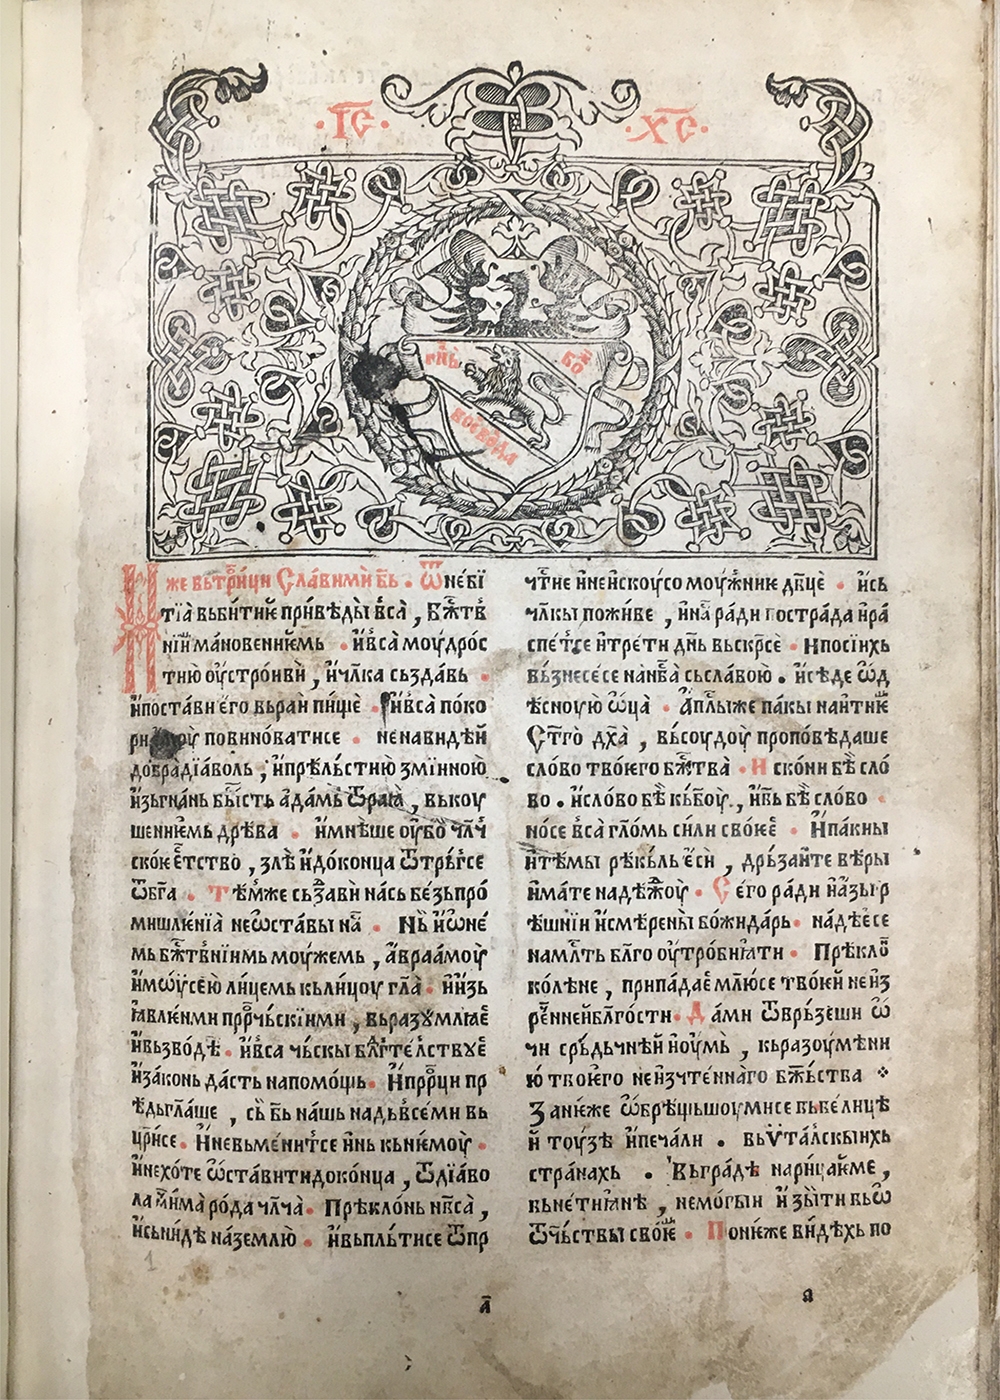 І҃С Х҃С
гн҃ь бо҃ж
воевода
Иже вьтрⷪ҇ици Славимїи б҃ь · Ѿнебї
тїа вьбитиѥ привѣды вса̀ , Бж҃тв
нїим мановениѥмь · ивса̀ моудрос
тию оустроиви , ичл҃ка сьздавь ·
ипостави ѥго вьраи пище · ивса поко
повиноватисе · ненавидѣи
добра дїаволь , ипрѣльстию змїиною
изьгнань бысть адамь ѿраꙗ , вькоу
шениѥмь дрѣва · имнѣше оубо чл҃ч
скоѥ ѥтство , злѣ идоконца ѿтрьгсе
ѿб҃га · Тѣмже сьзави нась безьпро
мишлѥнїа неѡставы на · Нь иѡне
мь бж҃твнїимь моужемь , авраамоу
имѡѵсею лицемь кьлицоу гл҃а · иизь
ꙗвлѥнми прⷪ҇рчьскїими , вьразꙋмлꙗѥ
ивьзводѣ · ивса чьскы бл҃гтѥлствꙋѥ
изаконь дасть напомощь · Ипрⷪ҇рци пр
ѣдьгл҃аше , сь б҃ь нашь надьвсеми вь
цр҃исе · Иневьменитсе инь кьнѥмоу ·
инехоте ѡставитидоконца , ѿдїаво
ла има рода чл҃ча · Прѣклонь нб҃са ,
исьниде наземлю · ивьпльтисе ѿпр
чт҃иѥ инеискоусомоужник дв҃це · ись
чл҃кы поживе , ина ради пострада ира
спетсе итрети днь вьскр҃се · Ипосїихь
вьзнесесе нанб҃а сьславою · исѣде ѡд
ѣсноую ѡца · Апл҃ыже пакы наитиѥ
Ст҃го дх҃а , вьсоудоу проповѣдаше
слово твоѥго бжтва · Искони бѣ сло
во · ислово бѣ кьб҃оу , иб҃ь бѣ слово ·
носе вса гл҃омь сили своѥѥ · Ипакыи
итѣмы рѣкьль ѥси , дрьзаите вѣры
имате надѣжоу · Сего ради иазь гр
ѣшнїи исмѣрены божидарь · надѣесе
намл҃ть бл҃го оутробниꙗти · Прѣкло
колѣне , припадаѥ млюсе твоѥи неиз
реннеиблⷢ҇ости · Дами ѿврьзеши ѡ
чи срьдьчнѣи иоумь , кьразоумѣни
ю твоѥго неизчтеннаго бжьства ⁘
Заниѥже ѡбрѣцьшоумисе вьвелице
и тоузѣ ипечали · вьѵталскыихь
странахь · Вьградѣ нарицаѥме ,
вьнетиꙗнѣ , немогыи изыти вьѡ
ѿчьствы своѥ · Пониѥже видѣхь по
а҃
а
1